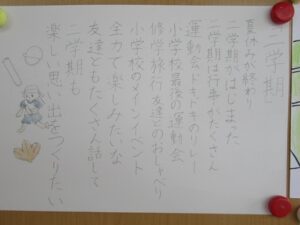 二学期
夏休みが終わり
二学期がはじまった
二学期は行事がたくさん
運動会ドキドキのリレー
小学校最後の運動会
修学旅行友達とのおしゃべり
小学校のメインイベント
全力で楽しみたいな
友達ともたくさん話して
二学期も
楽しい思い出をつくりたい